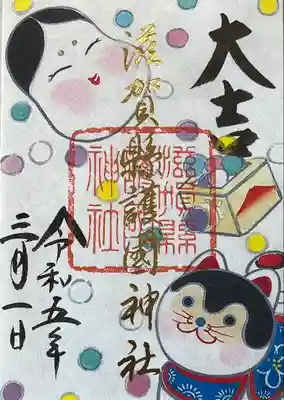 大吉
滋賀縣護國神社
滋賀縣護國神社
令和五年
三月一日